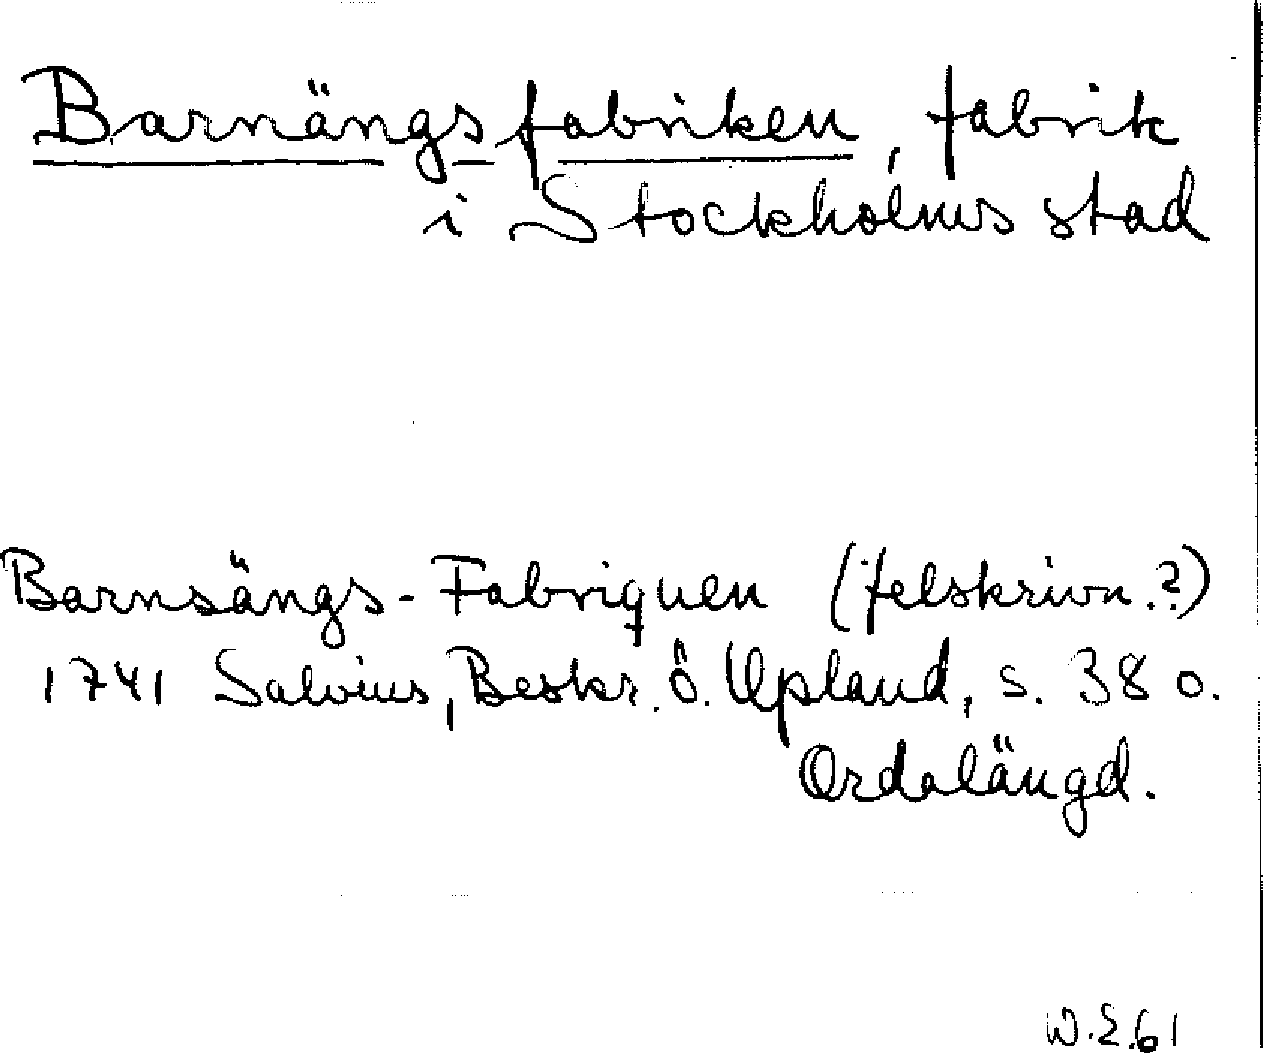 Barnängsfabriken, fabrik
i Stockholms stad
Barnsängs-Fabriquen (felskrivn.?)
1741 Salvius, Beskr. ö. Upland, s. 38 o.
Ordalängd.
W.E.61